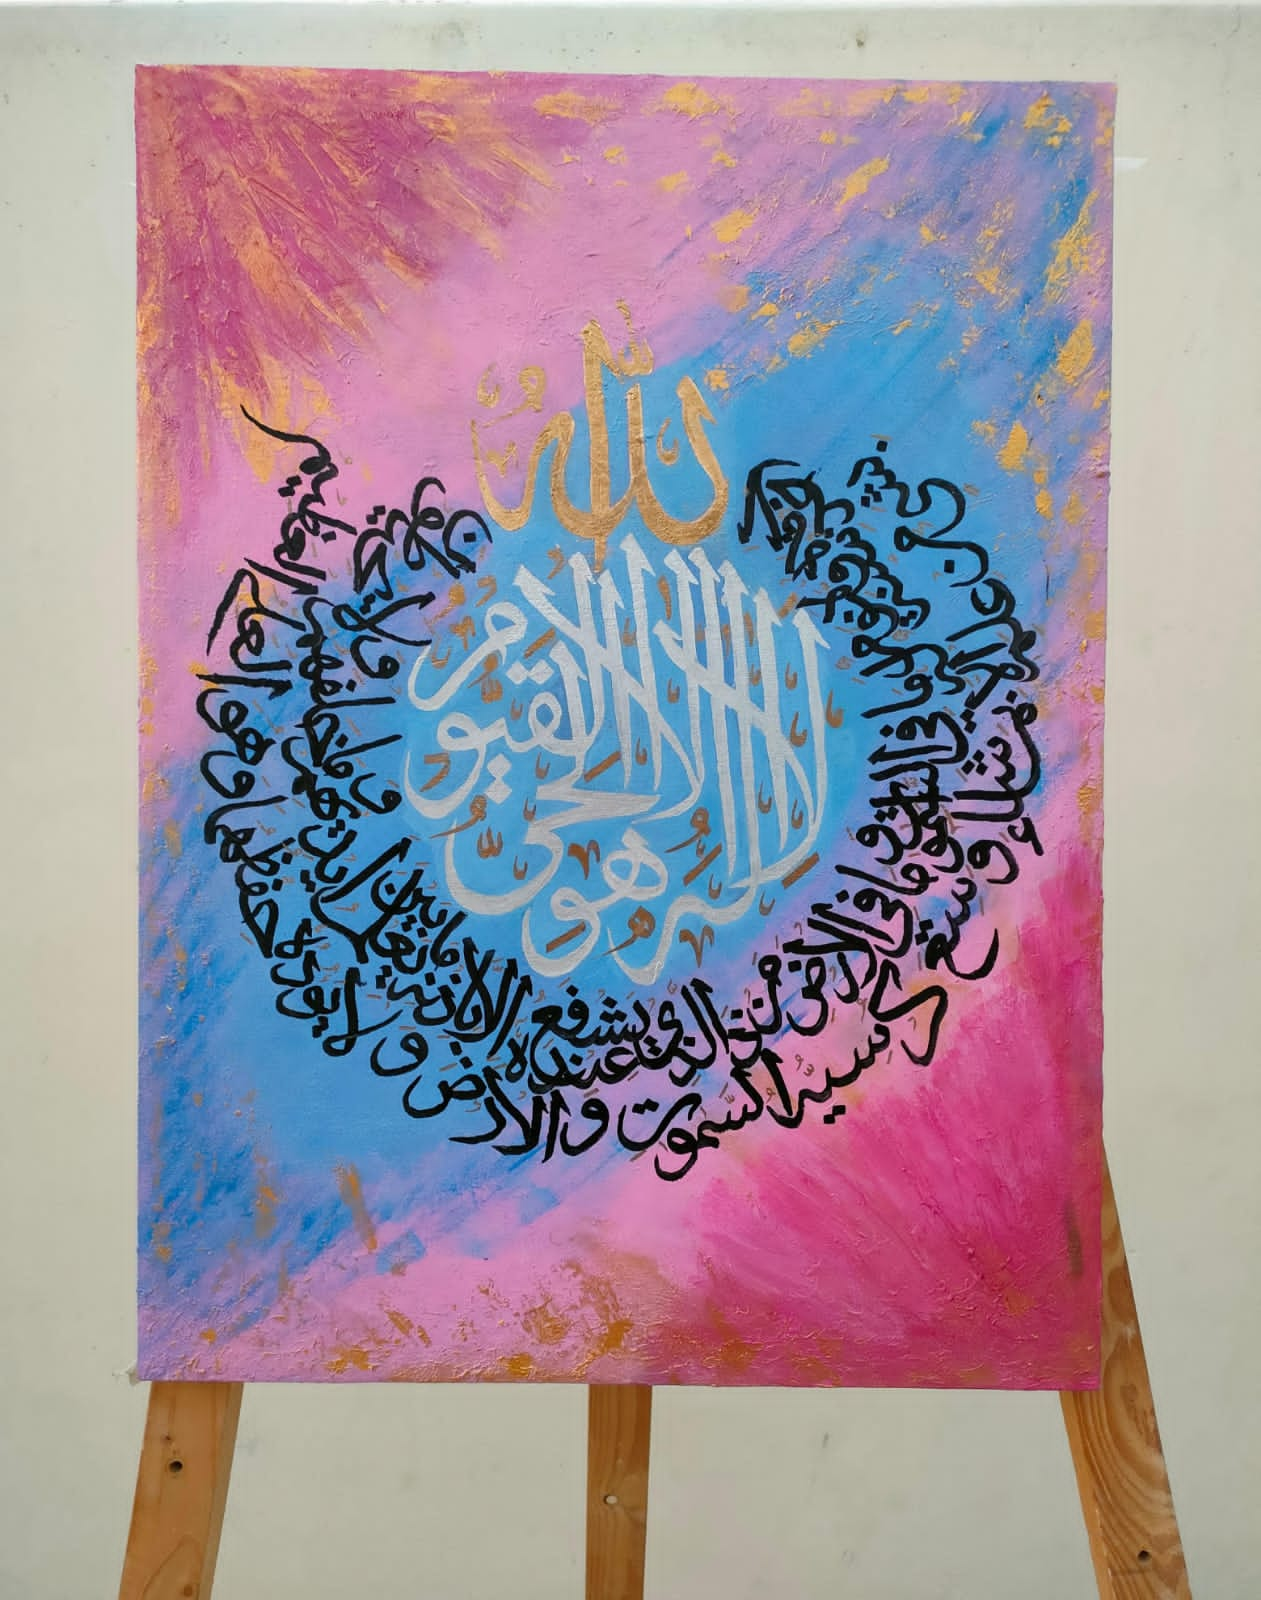 الله
لا اله الا هو الحي القيوم
لا تأخذه سنة ولا نوم له ما في السموت وما في الارض من ذا الذي يشفع عنده الا باذنه يعلم ما بين ايديهم وما خلفهم ولا يحيطون
بشيء من علمه الا بما شاء وسع كرسيه السموت والارض ولا يؤده حفظهما وهو العلي العظيم